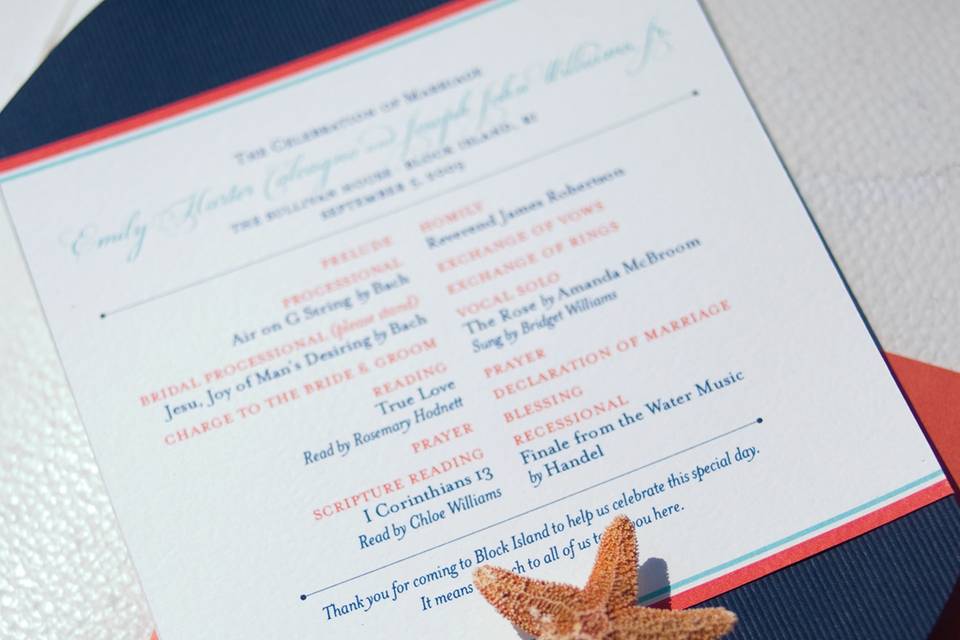 The Celebration of Marriage
Emily Harter and Joseph John Williams, Jr.
The Sullivan House · Block Island, RI
September 5, 2009
PRELUDE
PROCESSIONAL
Air on G String by Bach
BRIDAL PROCESSIONAL (please stand)
Jesu, Joy of Man's Desiring by Bach
CHARGE TO THE BRIDE & GROOM
READING
True Love
Read by Rosemary Hodnett
PRAYER
SCRIPTURE READING
I Corinthians 13
Read by Chloe Williams
HOMILY
Reverend James Robertson
EXCHANGE OF VOWS
EXCHANGE OF RINGS
VOCAL SOLO
The Rose by Amanda McBroom
Sung by Bridget Williams
PRAYER
DECLARATION OF MARRIAGE
BLESSING
RECESSIONAL
Finale from the Water Music
by Handel
Thank you for coming to Block Island to help us celebrate this special day.
It means to all of us you here.